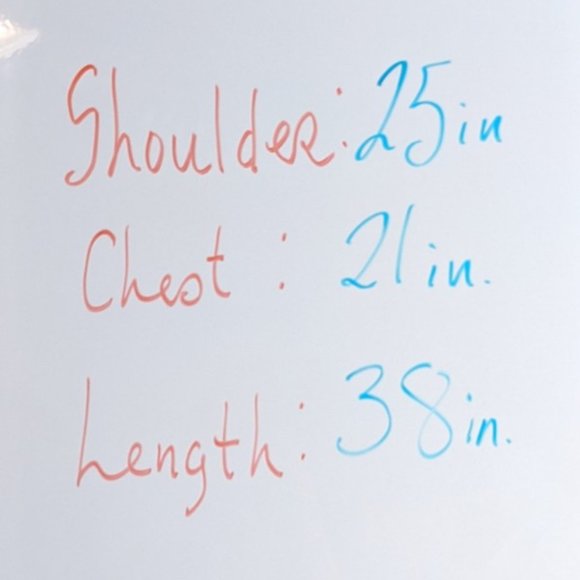 Shoulder: 25in
Chest: 21in.
Length: 38in.